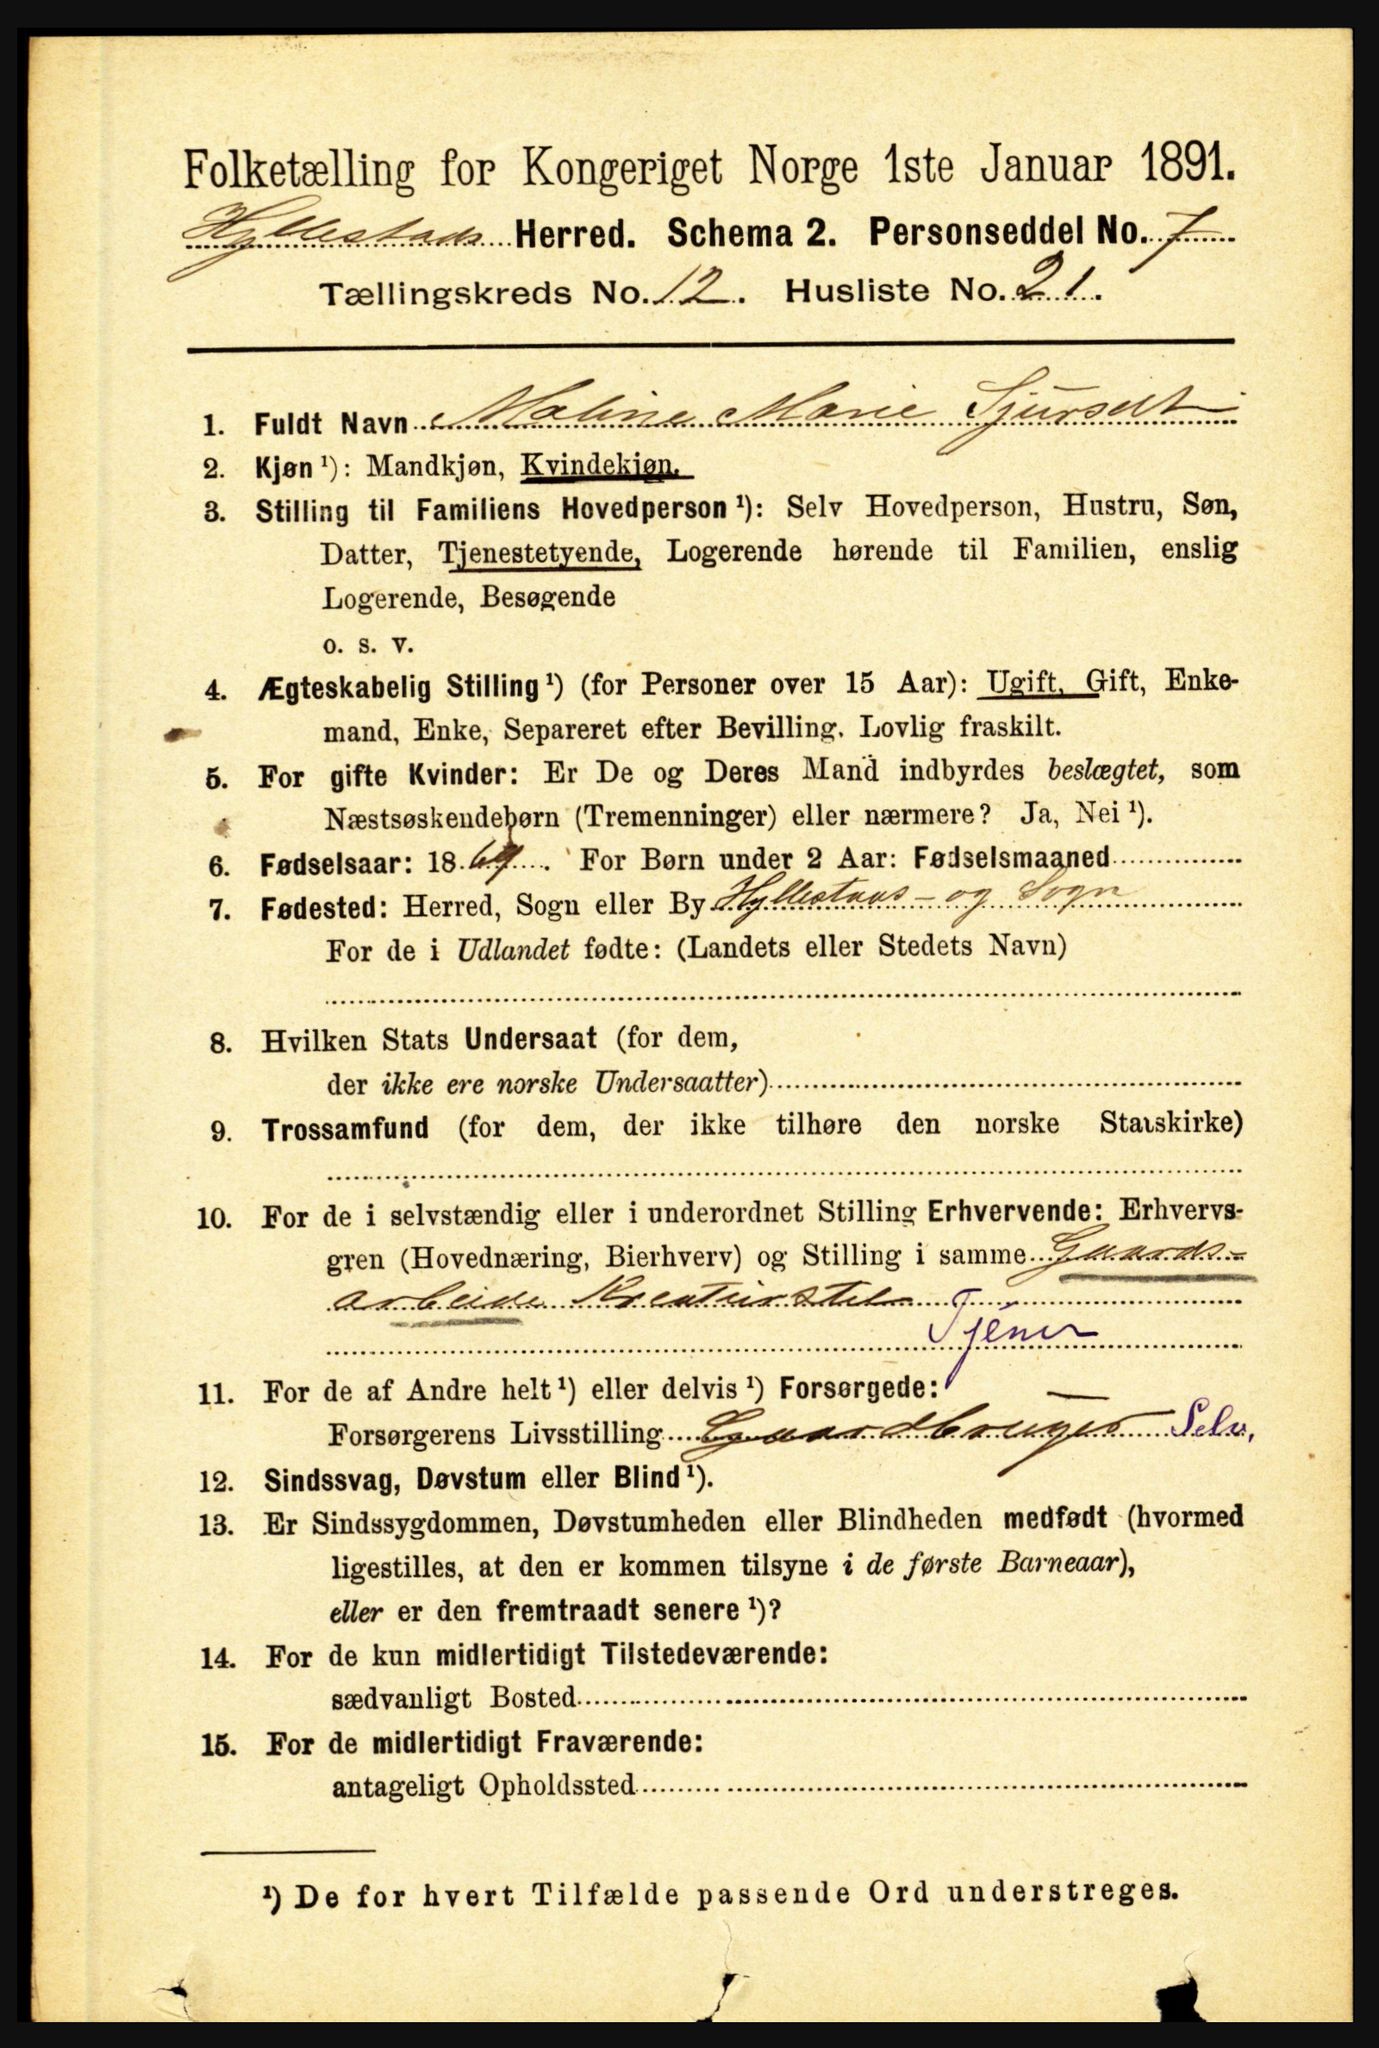 Folketælling for Kongeriget Norge 1ste Januar 1891.
Hyllestads Herred. Schema 2. Personseddel No. 7
Tællingskreds No. 12. Husliste No. 21.
1. Fuldt Navn Maline Marie Sjursdt
2. Kjøn ¹): Mandkjøn, Kvindekjøn.
3. Stilling til Familiens Hovedperson ¹): Selv Hovedperson, Hustru, Søn,
Datter, Tjenestetyende, Logerende hørende til Familien, enslig
Logerende, Besøgende
o. s. v.
4. Ægteskabelig Stilling ¹) (for Personer over 15 Aar): Ugift, Gift, Enke-
mand, Enke, Separeret efter Bevilling. Lovlig fraskilt.
5. For gifte Kvinder: Er De og Deres Mand indbyrdes beslægtet, som
Næstsøskendebørn (Tremenninger) eller nærmere? Ja, Nei ¹).
6. Fødselsaar: 1869. For Børn under 2 Aar: Fødselsmaaned
7. Fødested: Herred, Sogn eller By Hyllestads - og Sogn
For de i Udlandet fødte: (Landets eller Stedets Navn)
8. Hvilken Stats Undersaat (for dem,
der ikke ere norske Undersaatter)
9. Trossamfund (for dem, der ikke tilhøre den norske Statskirke)
10. For de i selvstændig eller i underordnet Stilling Erhvervende: Erhvervs-
gren (Hovednæring, Bierhverv) og Stilling i samme Gaards-
arbeide Kreaturstel
Tjener
11. For de af Andre helt ¹) eller delvis ¹) Forsørgede:
Forsørgerens Livsstilling Gaardbruger Selv,
12. Sindssvag, Døvstum eller Blind ¹).
13. Er Sindssygdommen, Døvstumheden eller Blindheden medfødt (hvormed
ligestilles, at den er kommen tilsyne i de første Barneaar),
eller er den fremtraadt senere ¹)?
14. For de kun midlertidigt Tilstedeværende:
sædvanligt Bosted
15. For de midlertidigt Fraværende:
antageligt Opholdssted
¹) De for hvert Tilfælde passende Ord understreges.